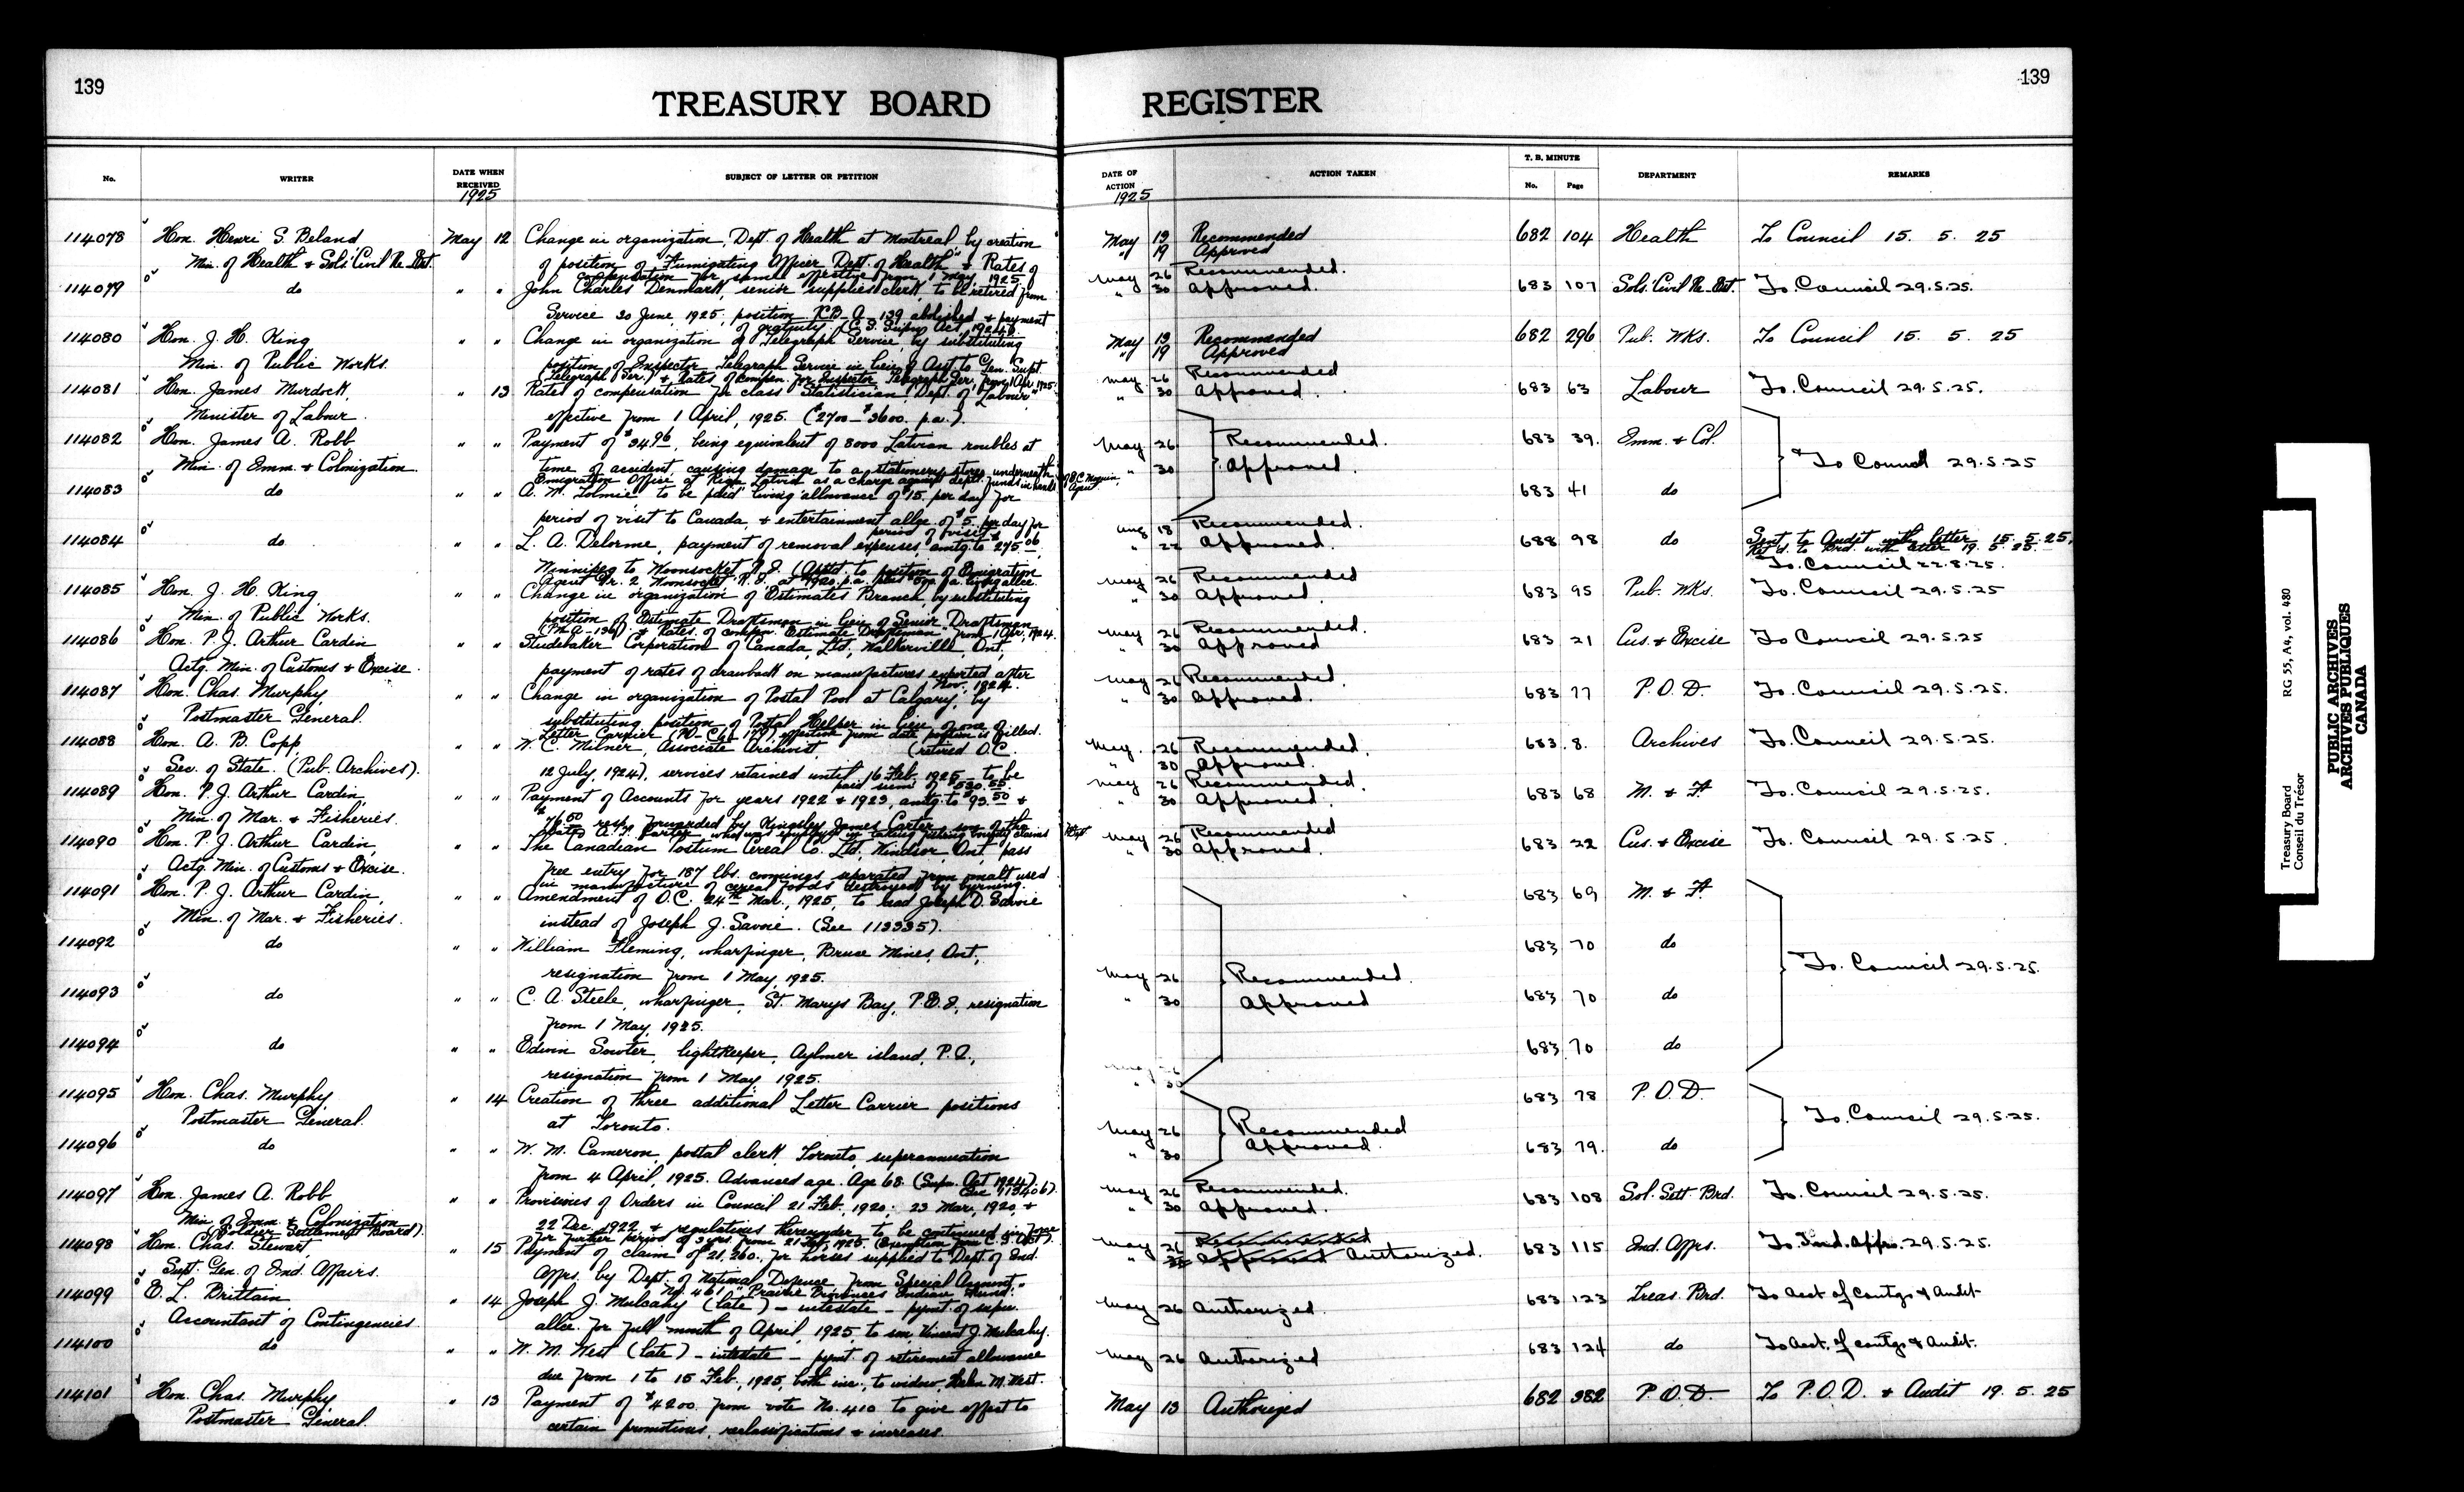 139
139
TREASURY BOARD REGISTER
No.
WRITER
DATE WHEN RECEIVED
1925
SUBJECT OF LETTER OR PETITION
DATE OF ACTION
1925
ACTION TAKEN
T. B. MINUTE
No.
Page
DEPARTMENT
REMARKS
114078 Hon. Henri S. Beland May 12 Change in organization, Dept. of Health at Montreal, by creation May 13 Recommended 682 104 Health To Council 15. 5. 25
Min. of Health & Sols. Civil Re-Est. of position of "Fumigating Officer Dept. of Health" & Rates of " 19 Approved
compensation for same effective from 1 May, 1925. May 26 Recommended.
114079 do " " John Charles Denmark, senior supplies clerk, to be retired from " 30 Approved. 683 107 Sols. Civil Re-Est. To. Council 29.5.25.
Service 30 June, 1925, position abolished & payment
of gratuity (C.S. Supn. Act, 1924).
114080 Hon. J. H. King " " Change in organization of Telegraph Service, by substituting May 13 Recommended 682 296 Pub. Wks. To Council 15. 5. 25
Min. of Public Works. position of Inspector, Telegraph Service in lieu of Asst. to Gen. Supt. " 19 Approved
Telegraph Ser.) & Rates of compen. for Inspector Telegraph Ser. from 1 Apr. 1925. May 26 Recommended
114081 Hon. James Murdock, " 13 Rates of compensation for class "Statistician, Dept. of Labour" " 30 Approved. 683 63 Labour To. Council 29.5.25.
Minister of Labour. effective from 1 April, 1925. ($2700 - $3600. p.a.).
114082 Hon. James A. Robb " " Payment of $34.96, being equivalent of 8000 Latvian roubles at May 26 Recommended. 683 39. Imm. & Col. To Council 29.5.25
Min. of Imm. & Colonization. time of accident, causing damage to a stationery store, underneath " 30 Approved.
Emigration Office at Riga Latvia as a charge against dept. funds in hands of
114083 do " " A. W. Tolmie to be paid living allowance of $15. per day for 683 41 do
period of visit to Canada, & entertainment allce. of $5. per day for
period of visit. Aug 18 Recommended.
114084 do " " L. A. Delorme, payment of removal expenses, amtg. to $275.06, " 22 Approved. 688 98 do Sent to Audit with letter 15.5.25.
Winnipeg to Woonsocket R.I. (Apptd. to position of Emigration Ret'd. to Brd. with letter 19.5.25.
Agent Gr. 2 Woonsocket R.I. at $1920. p.a. To. Council 22.8.25.
114085 Hon. J. H. King " " Change in organization of Estimates Branch, by substituting May 26 Recommended 683 95 Pub. Wks. To. Council 29.5.25
Min. of Public Works. position of Estimate Draftsman in lieu of Senior Draftsman " 30 Approved.
& Rates. of compen. Estimate Draftsman from 1 Apr, 1924.
114086 Hon. P. J. Arthur Cardin " " Studebaker Corporation of Canada, Ltd, Walkerville, Ont, May 26 Recommended. 683 21 Cus. & Excise To Council 29.5.25
Actg. Min. of Customs & Excise. payment of rates of drawback on manufactures exported after " 30 Approved
Nov. 1924. May 26 Recommended.
114087 Hon. Chas. Murphy, " " Change in organization of Postal Pool at Calgary, by " 30 Approved. 683 77 P.O.D. To. Council 29.5.25.
Postmaster General. substituting position of Postal Helper in lieu of one of
Letter Carrier effective from date position is filled.
114088 Hon. A. B. Copp, " " W. C. Milner, Associate Archivist, (retired O.C. May. 26 Recommended. 683. 8. Archives To. Council 29.5.25.
Sec. of State. (Pub. Archives). 12 July, 1924), services retained until 16 Feb. 1925 - to be " 30 Approved.
paid sum of $530.55.
114089 Hon. P. J. Arthur Cardin, " " Payment of Accounts for years 1922 & 1923, amtg. to $93.50 & May 26 Recommended. 683 68 M. & F. To. Council 29.5.25.
Min. of Mar. & Fisheries. $76.50 resp. forwarded by Kingsley James Carter, son of the " 30 Approved.
late A. F. Carter who was employed in taking fishing bounty claims
114090 Hon. P. J. Arthur Cardin, " " The Canadian Postum Cereal Co. Ltd, Windsor, Ont, pass May 26 Recommended 683 22 Cus. & Excise To. Council 29.5.25.
Actg. Min. of Customs & Excise. free entry for 187 lbs. comings separated from malt used " 30 Approved.
in manufacture of cereal foods destroyed by burning.
114091 Hon. P. J. Arthur Cardin, " " Amendment of O.C. 24th Mar., 1925, to read Joseph D. Savoie 683 69 M. & F.
Min. of Mar. & Fisheries. instead of Joseph J. Savoie. (See 113335).
114092 do " " William Fleming, wharfinger, Bruce Mines, Ont, 683 70 do
resignation from 1 May, 1925. May 26 Recommended. To. Council 29.5.25.
114093 do " " C. A. Steele, wharfinger, St. Marys Bay, P.E.I, resignation " 30 Approved 683 70 do
from 1 May, 1925.
114094 do " " Edwin Sowter, lightkeeper, Aylmer island, P.Q., 683 70 do
resignation from 1 May, 1925.
114095 Hon. Chas. Murphy " 14 Creation of three additional Letter Carrier positions 683 78 P.O.D.
Postmaster General. at Toronto. May 26 Recommended To. Council 29.5.25.
114096 do " " W. M. Cameron, postal clerk, Toronto, superannuation " 30 Approved. 683 79. do
from 4 April, 1925. Advanced age. Age 68. (Supn. Act 1924).
(See 113406).
114097 Hon. James A. Robb " " Provisions of Orders in Council 21 Feb. 1920; 23 Mar, 1920, & May 26 Recommended. 683 108 Sol. Sett. Brd. To. Council 29.5.25.
Min. of Imm. & Colonization 22 Dec. 1922, & regulations thereunder to be continued in force " 30 Approved.
(Soldier Settlement Board). for further period of 3 yrs. from 21 Feb, 1925. (Exemption from C. S. Act).
114098 Hon. Chas. Stewart, " 15 Payment of claim of 21,260. for horses supplied to Dept. of Ind. May 26 Recommended 683 115 Ind. Affrs. To. Ind. Affrs. 29.5.25.
Supt. Gen. of Ind. Affairs. Affrs. by Dept. of National Defence from Special Account, " 30 Approved Authorized.
No. 461 "Prairie Provinces Indian Fund."
114099 E. L. Brittain " 14 Joseph J. Mulcahy (late) - intestate - pymt. of supn. May 26 Authorized. 683 123 Treas. Brd. To Acct of Contgs & Audit
Accountant of Contingencies. allce. for full month of April, 1925, to son, Vincent J. Mulcahy.
114100 do " " W. M. West (late) - intestate - pymt. of retirement allowance May 26 Authorized 683 124 do To Acct. of Contgs & Audit.
due from 1 to 15 Feb., 1925, both inc., to widow, Helen M. West.
114101 Hon. Chas. Murphy, " 13 Payment of $4200. from vote No. 410 to give effect to May 13 Authorized 682 382 P.O.D. To P.O.D. & Audit 19. 5. 25
Postmaster General. certain promotions, reclassifications & increases.
Treasury Board RG 55, A4, vol. 480
Conseil du Trésor
PUBLIC ARCHIVES
ARCHIVES PUBLIQUES
CANADA